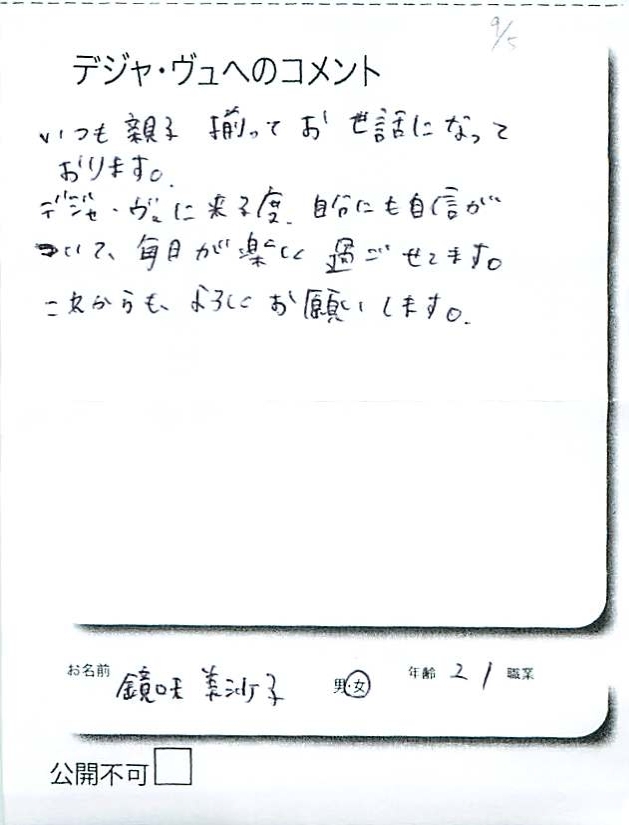 9/5
デジャ・ヴュへのコメント
いつも親子揃ってお世話になって
おります。
デジャ・ヴュに来る度、自分にも自信が
ついて、毎日が楽しく過ごせてます。
これからも、よろしくお願いします。
お名前 鏡味 美沙子 男・女 年齢 21 職業
公開不可